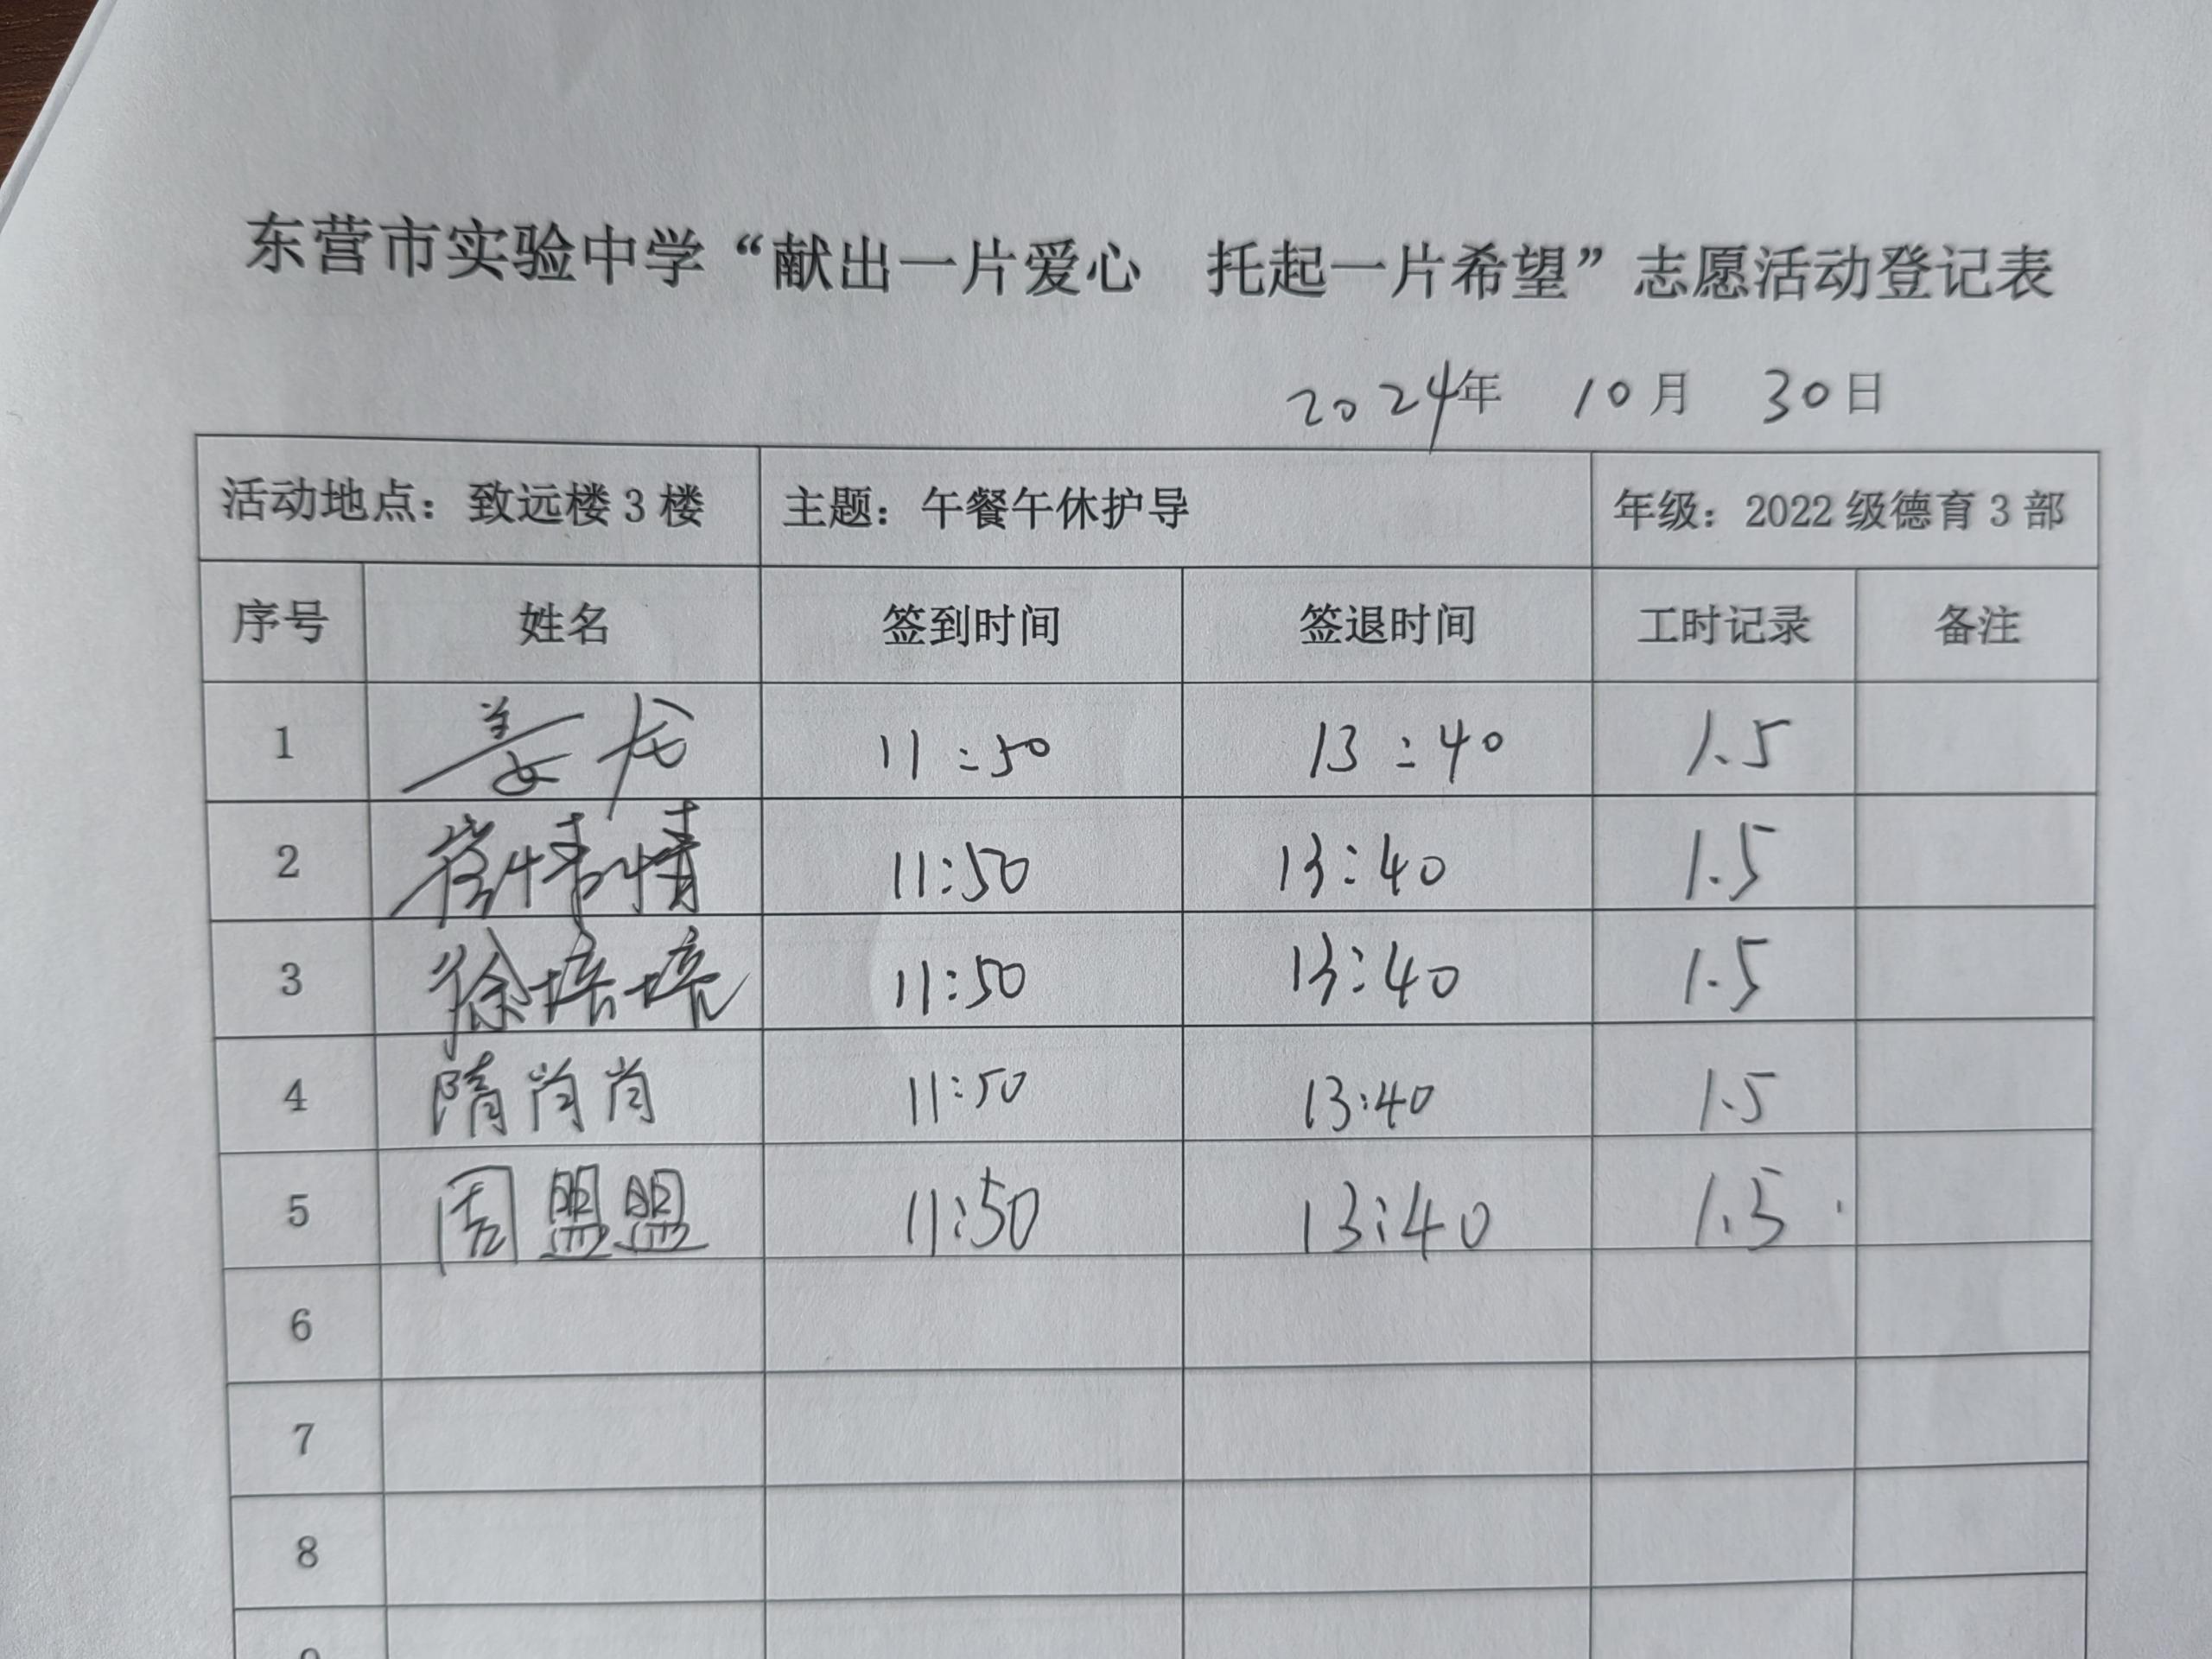 东营市实验中学“献出一片爱心 托起一片希望”志愿活动登记表
2024年 10月 30日
活动地点：致远楼3楼 主题：午餐午休护导 年级：2022级德育3部
序号 姓名 签到时间 签退时间 工时记录 备注
1 姜龙 11:50 13:40 1.5
2 崔倩倩 11:50 13:40 1.5
3 徐培培 11:50 13:40 1.5
4 隋肖肖 11:50 13:40 1.5
5 周盟盟 11:50 13:40 1.5
6
7
8